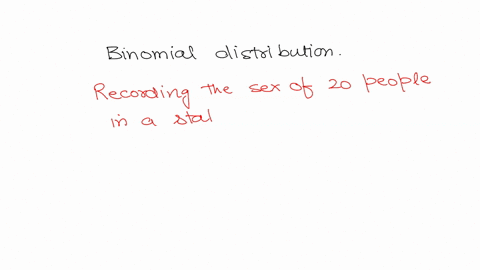 Binomial distribution.
Recording the sex of 20 people
in a stal